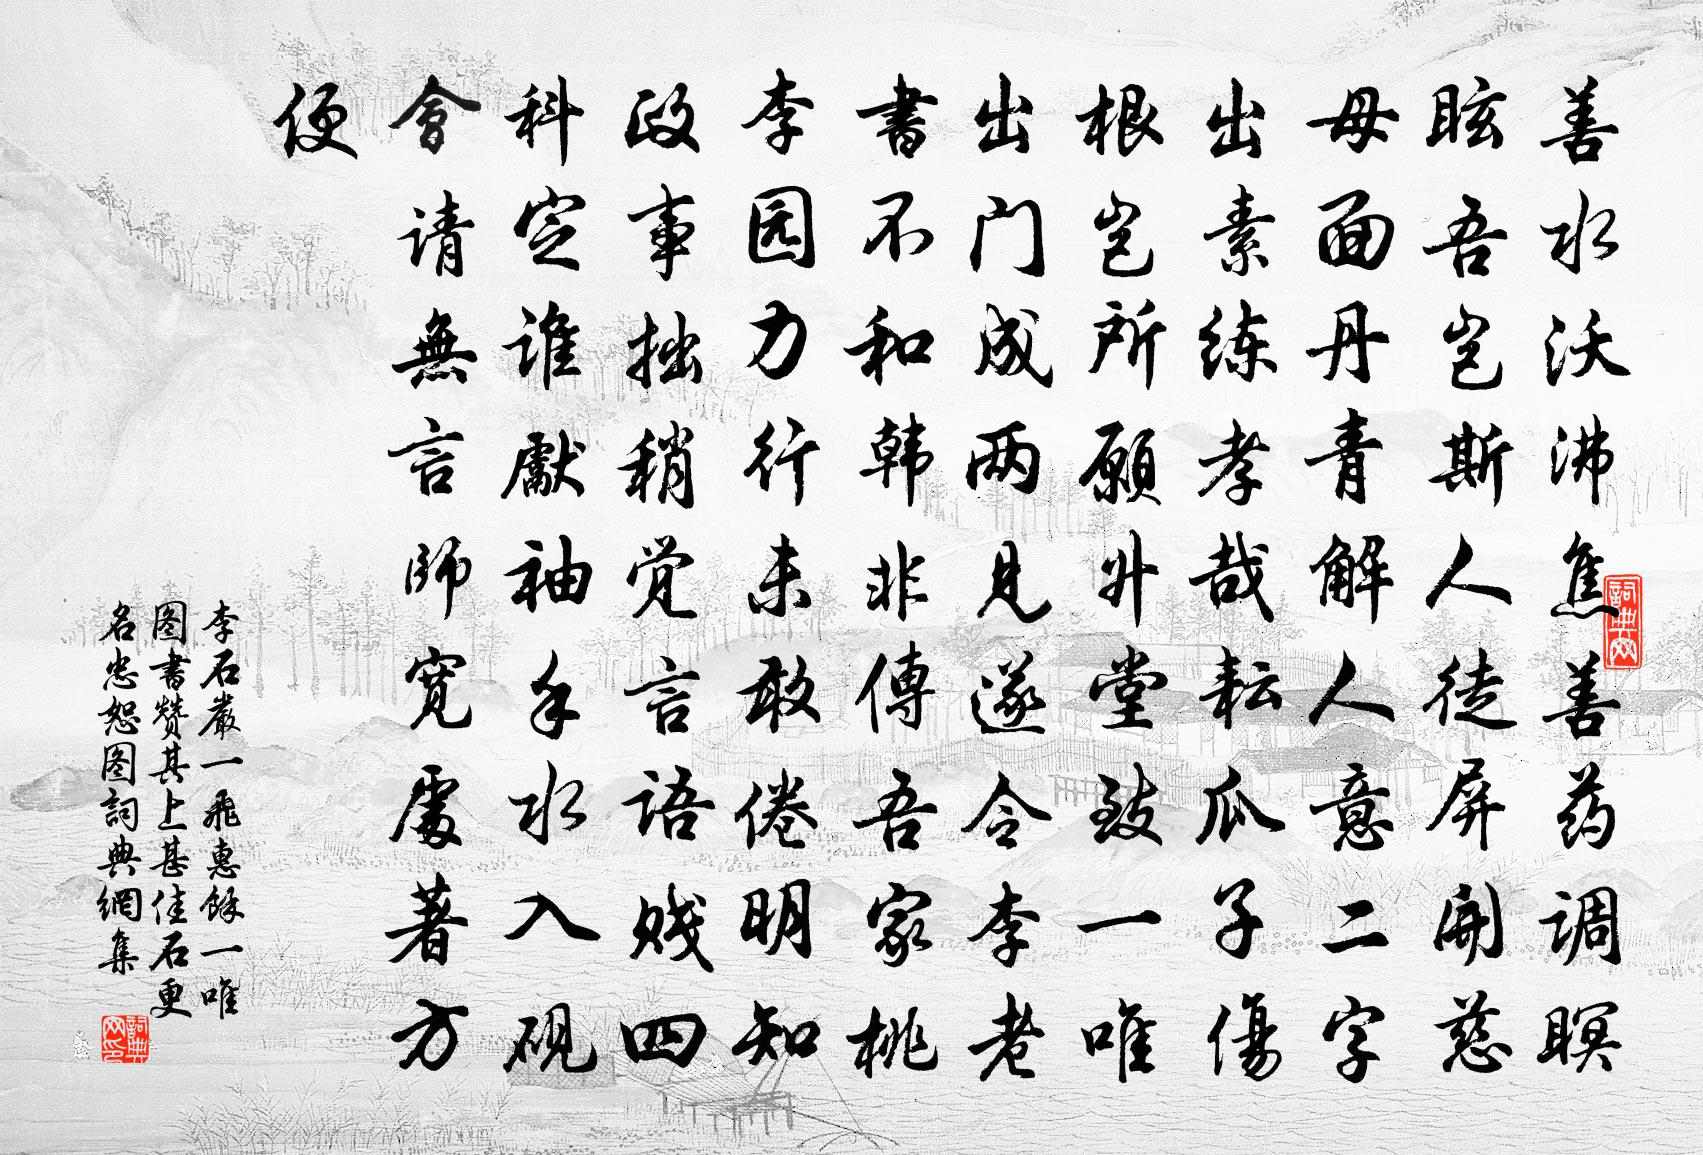 善水沃沸焦善药调瞑
眩吾岂斯人徒屏開慈
母面丹青解人意二字
出素练孝哉耘瓜子傷
根岂所願升堂致一唯
出门成两見遂令李老
書不和韩非傳吾家桃
李园力行未敢倦明知
政事拙稍觉言语贱四
科定谁獻袖手水入砚
會请無言師宽處著方
便
李石巖一飛惠餘一唯
图書赞其上甚佳石更
名忠恕图詞典網集
詞典网
詞典网印